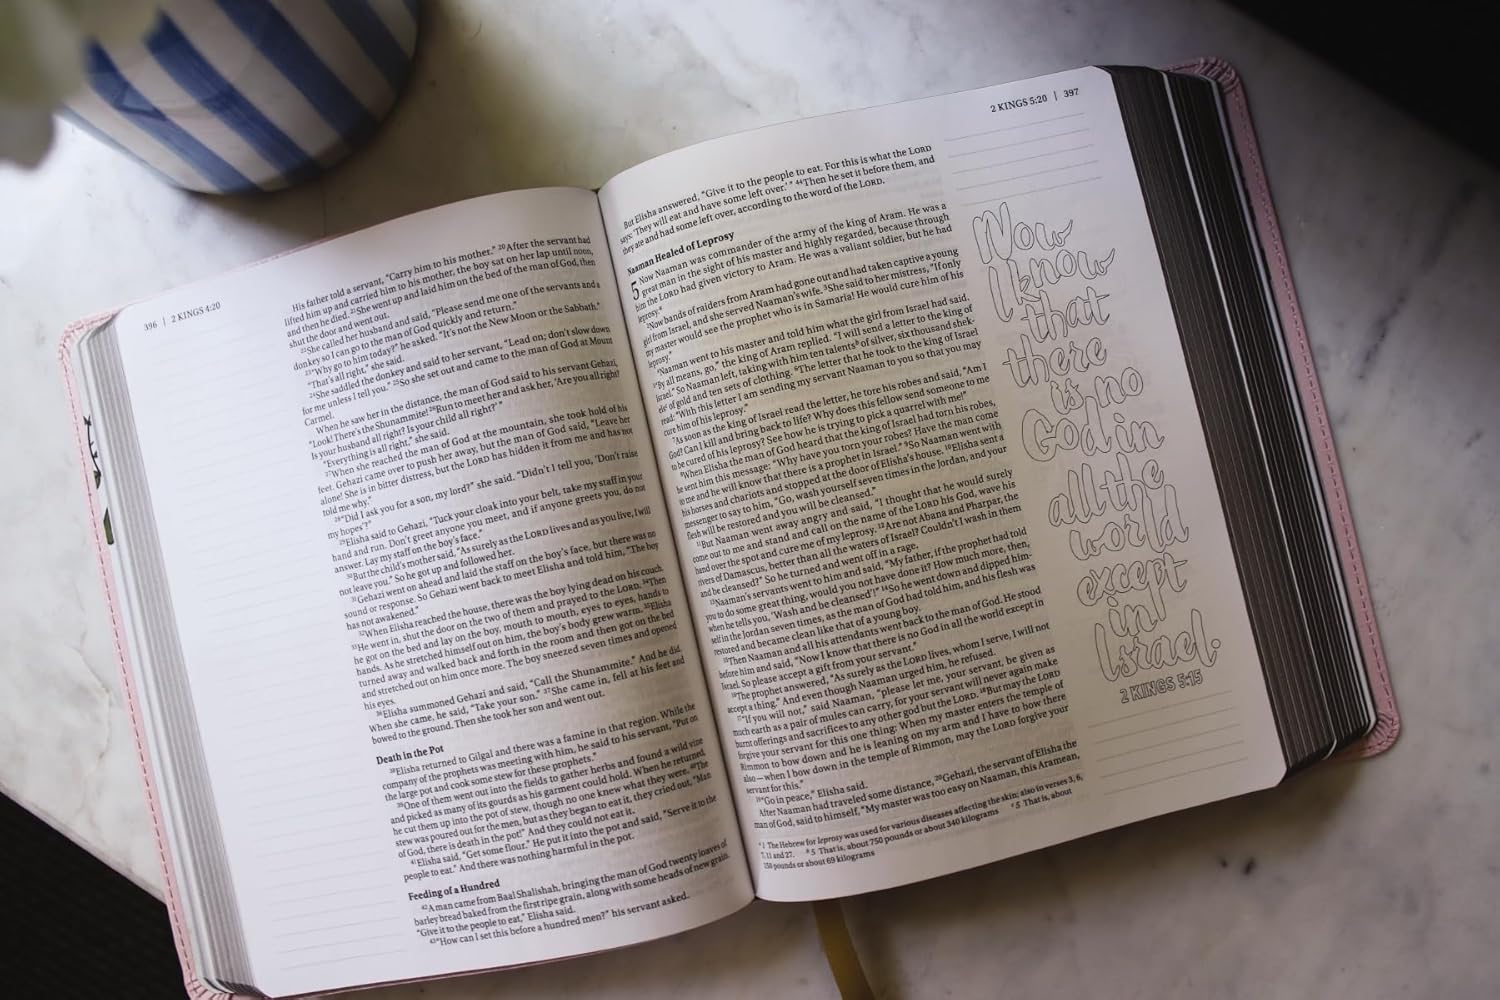 396 | 2 KINGS 4:20
His father told a servant, “Carry him to his mother.” 20After the servant had
lifted him up and carried him to his mother, the boy sat on her lap until noon,
and then he died. 21She went up and laid him on the bed of the man of God, then
shut the door and went out.
22She called her husband and said, “Please send me one of the servants and a
donkey so I can go to the man of God quickly and return.”
23“Why go to him today?” he asked. “It’s not the New Moon or the Sabbath.”
“That’s all right,” she said.
24She saddled the donkey and said to her servant, “Lead on; don’t slow down
for me unless I tell you.” 25So she set out and came to the man of God at Mount
Carmel.
When he saw her in the distance, the man of God said to his servant Gehazi,
“Look! There’s the Shunammite! 26Run to meet her and ask her, ‘Are you all right?
Is your husband all right? Is your child all right?’ ”
“Everything is all right,” she said.
27When she reached the man of God at the mountain, she took hold of his
feet. Gehazi came over to push her away, but the man of God said, “Leave her
alone! She is in bitter distress, but the LORD has hidden it from me and has not
told me why.”
28“Did I ask you for a son, my lord?” she said. “Didn’t I tell you, ‘Don’t raise
my hopes’?”
29Elisha said to Gehazi, “Tuck your cloak into your belt, take my staff in your
hand and run. Don’t greet anyone you meet, and if anyone greets you, do not
answer. Lay my staff on the boy’s face.”
30But the child’s mother said, “As surely as the LORD lives and as you live, I will
not leave you.” So he got up and followed her.
31Gehazi went on ahead and laid the staff on the boy’s face, but there was no
sound or response. So Gehazi went back to meet Elisha and told him, “The boy
has not awakened.”
32When Elisha reached the house, there was the boy lying dead on his couch.
33He went in, shut the door on the two of them and prayed to the LORD. 34Then
he got on the bed and lay on the boy, mouth to mouth, eyes to eyes, hands to
hands. As he stretched himself out on him, the boy’s body grew warm. 35Elisha
turned away and walked back and forth in the room and then got on the bed
and stretched out on him once more. The boy sneezed seven times and opened
his eyes.
36Elisha summoned Gehazi and said, “Call the Shunammite.” And he did.
When she came, he said, “Take your son.” 37She came in, fell at his feet and
bowed to the ground. Then she took her son and went out.
Death in the Pot
38Elisha returned to Gilgal and there was a famine in that region. While the
company of the prophets was meeting with him, he said to his servant, “Put on
the large pot and cook some stew for these prophets.”
39One of them went out into the fields to gather herbs and found a wild vine
and picked as many of its gourds as his garment could hold. When he returned,
he cut them up into the pot of stew, though no one knew what they were. 40The
stew was poured out for the men, but as they began to eat it, they cried out, “Man
of God, there is death in the pot!” And they could not eat it.
41Elisha said, “Get some flour.” He put it into the pot and said, “Serve it to the
people to eat.” And there was nothing harmful in the pot.
Feeding of a Hundred
42A man came from Baal Shalishah, bringing the man of God twenty loaves of
barley bread baked from the first ripe grain, along with some heads of new grain.
“Give it to the people to eat,” Elisha said.
43“How can I set this before a hundred men?” his servant asked.
2 KINGS 5:20 | 397
But Elisha answered, “Give it to the people to eat. For this is what the LORD
says: ‘They will eat and have some left over.’ ” 44Then he set it before them, and
they ate and had some left over, according to the word of the LORD.
Naaman Healed of Leprosy
5 Now Naaman was commander of the army of the king of Aram. He was a
great man in the sight of his master and highly regarded, because through
him the LORD had given victory to Aram. He was a valiant soldier, but he had
leprosy.a
2Now bands of raiders from Aram had gone out and had taken captive a young
girl from Israel, and she served Naaman’s wife. 3She said to her mistress, “If only
my master would see the prophet who is in Samaria! He would cure him of his
leprosy.”
4Naaman went to his master and told him what the girl from Israel had said.
5“By all means, go,” the king of Aram replied. “I will send a letter to the king of
Israel.” So Naaman left, taking with him ten talentsb of silver, six thousand shek-
elsc of gold and ten sets of clothing. 6The letter that he took to the king of Israel
read: “With this letter I am sending my servant Naaman to you so that you may
cure him of his leprosy.”
7As soon as the king of Israel read the letter, he tore his robes and said, “Am I
God? Can I kill and bring back to life? Why does this fellow send someone to me
to be cured of his leprosy? See how he is trying to pick a quarrel with me!”
8When Elisha the man of God heard that the king of Israel had torn his robes,
he sent him this message: “Why have you torn your robes? Have the man come
to me and he will know that there is a prophet in Israel.” 9So Naaman went with
his horses and chariots and stopped at the door of Elisha’s house. 10Elisha sent a
messenger to say to him, “Go, wash yourself seven times in the Jordan, and your
flesh will be restored and you will be cleansed.”
11But Naaman went away angry and said, “I thought that he would surely
come out to me and stand and call on the name of the LORD his God, wave his
hand over the spot and cure me of my leprosy. 12Are not Abana and Pharpar, the
rivers of Damascus, better than all the waters of Israel? Couldn’t I wash in them
and be cleansed?” So he turned and went off in a rage.
13Naaman’s servants went to him and said, “My father, if the prophet had told
you to do some great thing, would you not have done it? How much more, then,
when he tells you, ‘Wash and be cleansed’!” 14So he went down and dipped him-
self in the Jordan seven times, as the man of God had told him, and his flesh was
restored and became clean like that of a young boy.
15Then Naaman and all his attendants went back to the man of God. He stood
before him and said, “Now I know that there is no God in all the world except in
Israel. So please accept a gift from your servant.”
16The prophet answered, “As surely as the LORD lives, whom I serve, I will not
accept a thing.” And even though Naaman urged him, he refused.
17“If you will not,” said Naaman, “please let me, your servant, be given as
much earth as a pair of mules can carry, for your servant will never again make
burnt offerings and sacrifices to any other god but the LORD. 18But may the LORD
forgive your servant for this one thing: When my master enters the temple of
Rimmon to bow down and he is leaning on my arm and I have to bow there
also—when I bow down in the temple of Rimmon, may the LORD forgive your
servant for this.”
19“Go in peace,” Elisha said.
After Naaman had traveled some distance, 20Gehazi, the servant of Elisha the
man of God, said to himself, “My master was too easy on Naaman, this Aramean,
a 1 The Hebrew for leprosy was used for various diseases affecting the skin; also in verses 3, 6,
7, 11 and 27. b 5 That is, about 750 pounds or about 340 kilograms c 5 That is, about
150 pounds or about 69 kilograms
Now
I know
that
there
is no
God in
all the
world
except
in
Israel.
2 KINGS 5:15